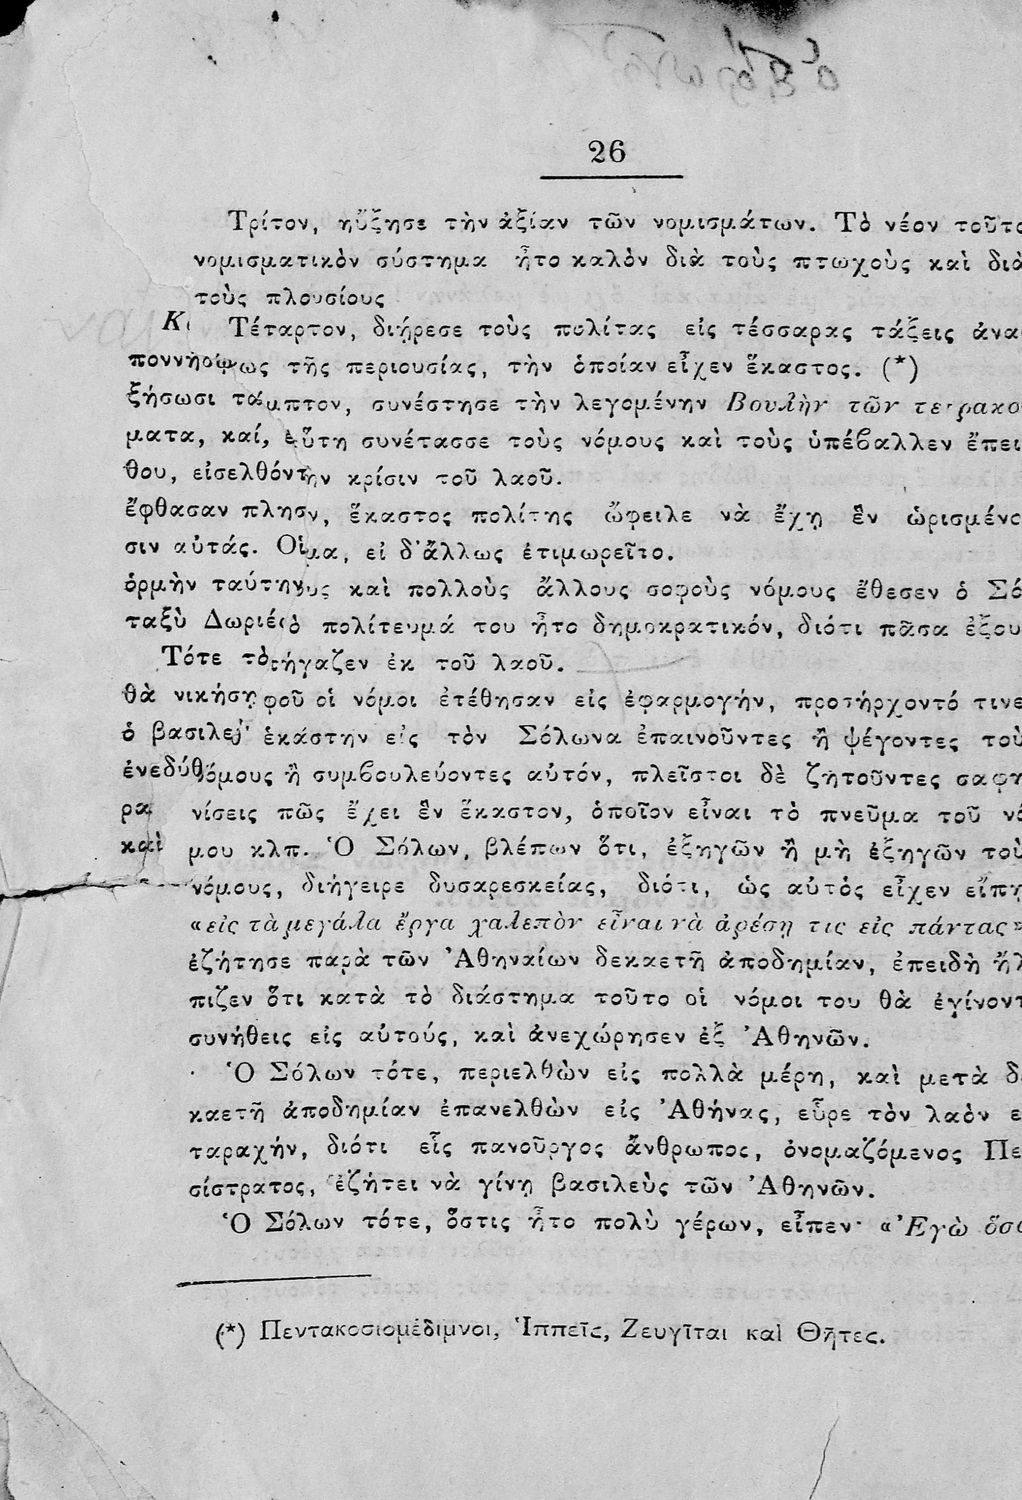 26
Τρίτον, ηὔξησε τὴν ἀξίαν τῶν νομισμάτων. Τὸ νέον τοῦτο
νομισματικὸν σύστημα ἦτο καλὸν διὰ τοὺς πτωχοὺς καὶ διὰ
τοὺς πλουσίους
Τέταρτον, διῄρεσε τοὺς πολίτας εἰς τέσσαρας τάξεις ἀνα
τῆς περιουσίας, τὴν ὁποίαν εἶχεν ἕκαστος. (*)
ξήσωσι συνέστησε τὴν λεγομένην Βουλὴν τῶν τετρακο
ματα, συνέτασσε τοὺς νόμους καὶ τοὺς ὑπέβαλλεν ἔπει
θου, κρίσιν τοῦ λαοῦ.
ἔφθασαν ἕκαστος πολίτης ὤφειλε νὰ ἔχῃ ἓν ὡρισμένο
σιν αὐτάς. εἰ δ' ἄλλως ἐτιμωρεῖτο.
ὁρμὴν ταύτην καὶ πολλοὺς ἄλλους σοφοὺς νόμους ἔθεσεν ὁ Σό
ταξὺ πολίτευμά του ἦτο δημοκρατικόν, διότι πᾶσα ἐξου
Τότε ἐκ τοῦ λαοῦ.
θὰ οἱ νόμοι ἐτέθησαν εἰς ἐφαρμογήν, προσήρχοντό τινε
ὁ ἑκάστην εἰς τὸν Σόλωνα ἐπαινοῦντες ἢ ψέγοντες τοὺ
ἢ συμβουλεύοντες αὐτόν, πλεῖστοι δὲ ζητοῦντες σαφη
ρα νίσεις πῶς ἔχει ἓν ἕκαστον, ὁποῖον εἶναι τὸ πνεῦμα τοῦ νό
καὶ μου κλπ. Ὁ Σόλων, βλέπων ὅτι, ἐξηγῶν ἢ μὴ ἐξηγῶν τοὺ
νόμους, διήγειρε δυσαρεσκείας, διότι, ὡς αὐτὸς εἶχεν εἴπῃ
«εἰς τὰ μεγάλα ἔργα χαλεπὸν εἶναι νὰ ἀρέσῃ τις εἰς πάντας»
ἐζήτησε παρὰ τῶν Ἀθηναίων δεκαετῆ ἀποδημίαν, ἐπειδὴ ἤλ
πιζεν ὅτι κατὰ τὸ διάστημα τοῦτο οἱ νόμοι του θὰ ἐγίνοντ
συνήθεις εἰς αὐτούς, καὶ ἀνεχώρησεν ἐξ Ἀθηνῶν.
Ὁ Σόλων τότε, περιελθὼν εἰς πολλὰ μέρη, καὶ μετὰ δε
καετῆ ἀποδημίαν ἐπανελθὼν εἰς Ἀθήνας, εὗρε τὸν λαὸν ε
ταραχήν, διότι εἷς πανοῦργος ἄνθρωπος, ὀνομαζόμενος Πει
σίστρατος, ἐζήτει νὰ γίνῃ βασιλεὺς τῶν Ἀθηνῶν.
Ὁ Σόλων τότε, ὅστις ἦτο πολὺ γέρων, εἶπεν· «Ἐγὼ ὅσο
(*) Πεντακοσιομέδιμνοι, Ἱππεῖς, Ζευγῖται καὶ Θῆτες.